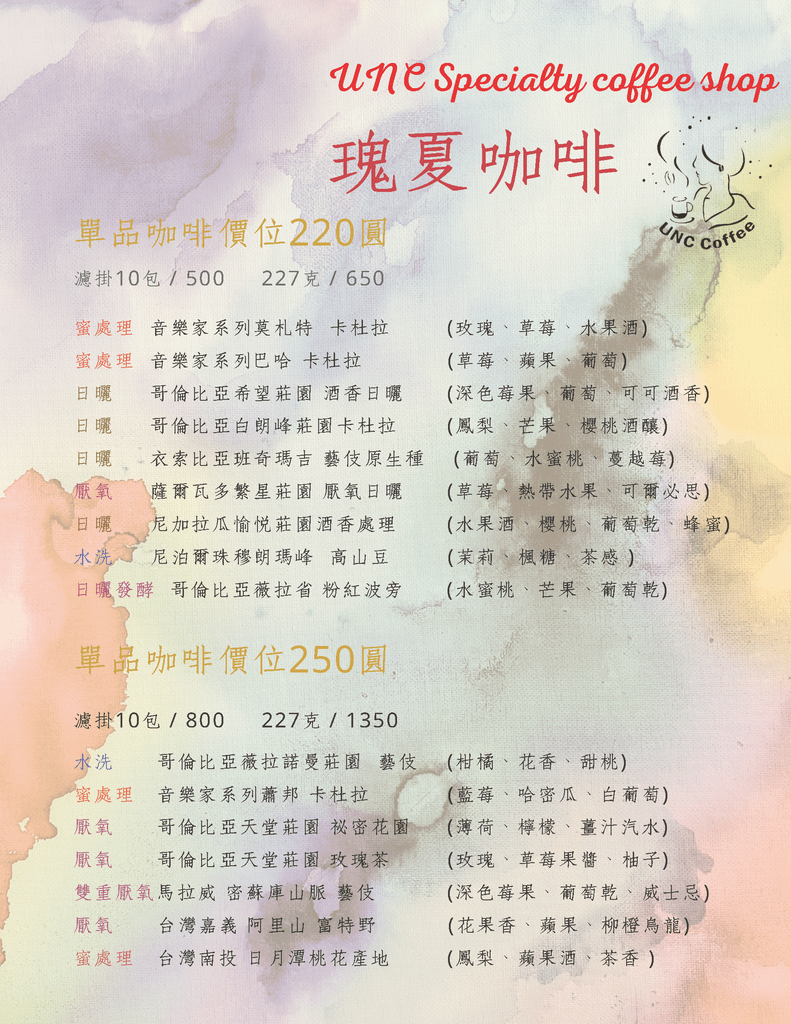 UNC Specialty coffee shop
瑰夏咖啡
UNC Coffee
單品咖啡價位220圓
濾掛10包 / 500 227克 / 650
蜜處理 音樂家系列莫札特 卡杜拉 (玫瑰、草莓、水果酒)
蜜處理 音樂家系列巴哈 卡杜拉 (草莓、蘋果、葡萄)
日曬 哥倫比亞希望莊園 酒香日曬 (深色莓果、葡萄、可可酒香)
日曬 哥倫比亞白朗峰莊園卡杜拉 (鳳梨、芒果、櫻桃酒釀)
日曬 衣索比亞班奇瑪吉 藝伎原生種 (葡萄、水蜜桃、蔓越莓)
厭氧 薩爾瓦多繁星莊園 厭氧日曬 (草莓、熱帶水果、可爾必思)
日曬 尼加拉瓜愉悅莊園酒香處理 (水果酒、櫻桃、葡萄乾、蜂蜜)
水洗 尼泊爾珠穆朗瑪峰 高山豆 (茉莉、楓糖、茶感 )
日曬發酵 哥倫比亞薇拉省 粉紅波旁 (水蜜桃、芒果、葡萄乾)
單品咖啡價位250圓
濾掛10包 / 800 227克 / 1350
水洗 哥倫比亞薇拉諾曼莊園 藝伎 (柑橘、花香、甜桃)
蜜處理 音樂家系列蕭邦 卡杜拉 (藍莓、哈密瓜、白葡萄)
厭氧 哥倫比亞天堂莊園 祕密花園 (薄荷、檸檬、薑汁汽水)
厭氧 哥倫比亞天堂莊園 玫瑰茶 (玫瑰、草莓果醬、柚子)
雙重厭氧 馬拉威 密蘇庫山脈 藝伎 (深色莓果、葡萄乾、威士忌)
厭氧 台灣嘉義 阿里山 富特野 (花果香、蘋果、柳橙烏龍)
蜜處理 台灣南投 日月潭桃花產地 (鳳梨、蘋果酒、茶香 )